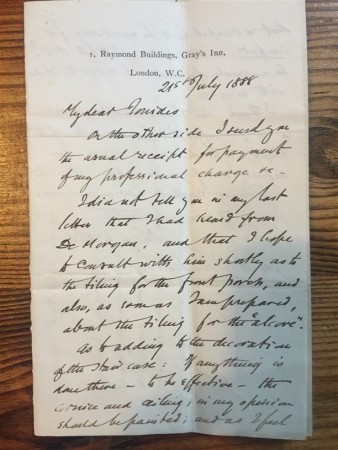 1, Raymond Buildings, Gray's Inn,
London, W.C.
21st July 1888
My dear Ionides
On the other side I send you
the usual receipt for payment
of my professional charge re-
I did not tell you in my last
letter that I had heard from
De Morgan, and that I hope
to consult with him shortly as to
the tiling for the front porch, and
also, as soon as I am prepared,
about the tiling for the "alcove".
As to adding to the decoration
of the stair case: If anything is
done there - to be effective - the
cornice and ceiling, in my opinion
should be painted; and as I feel